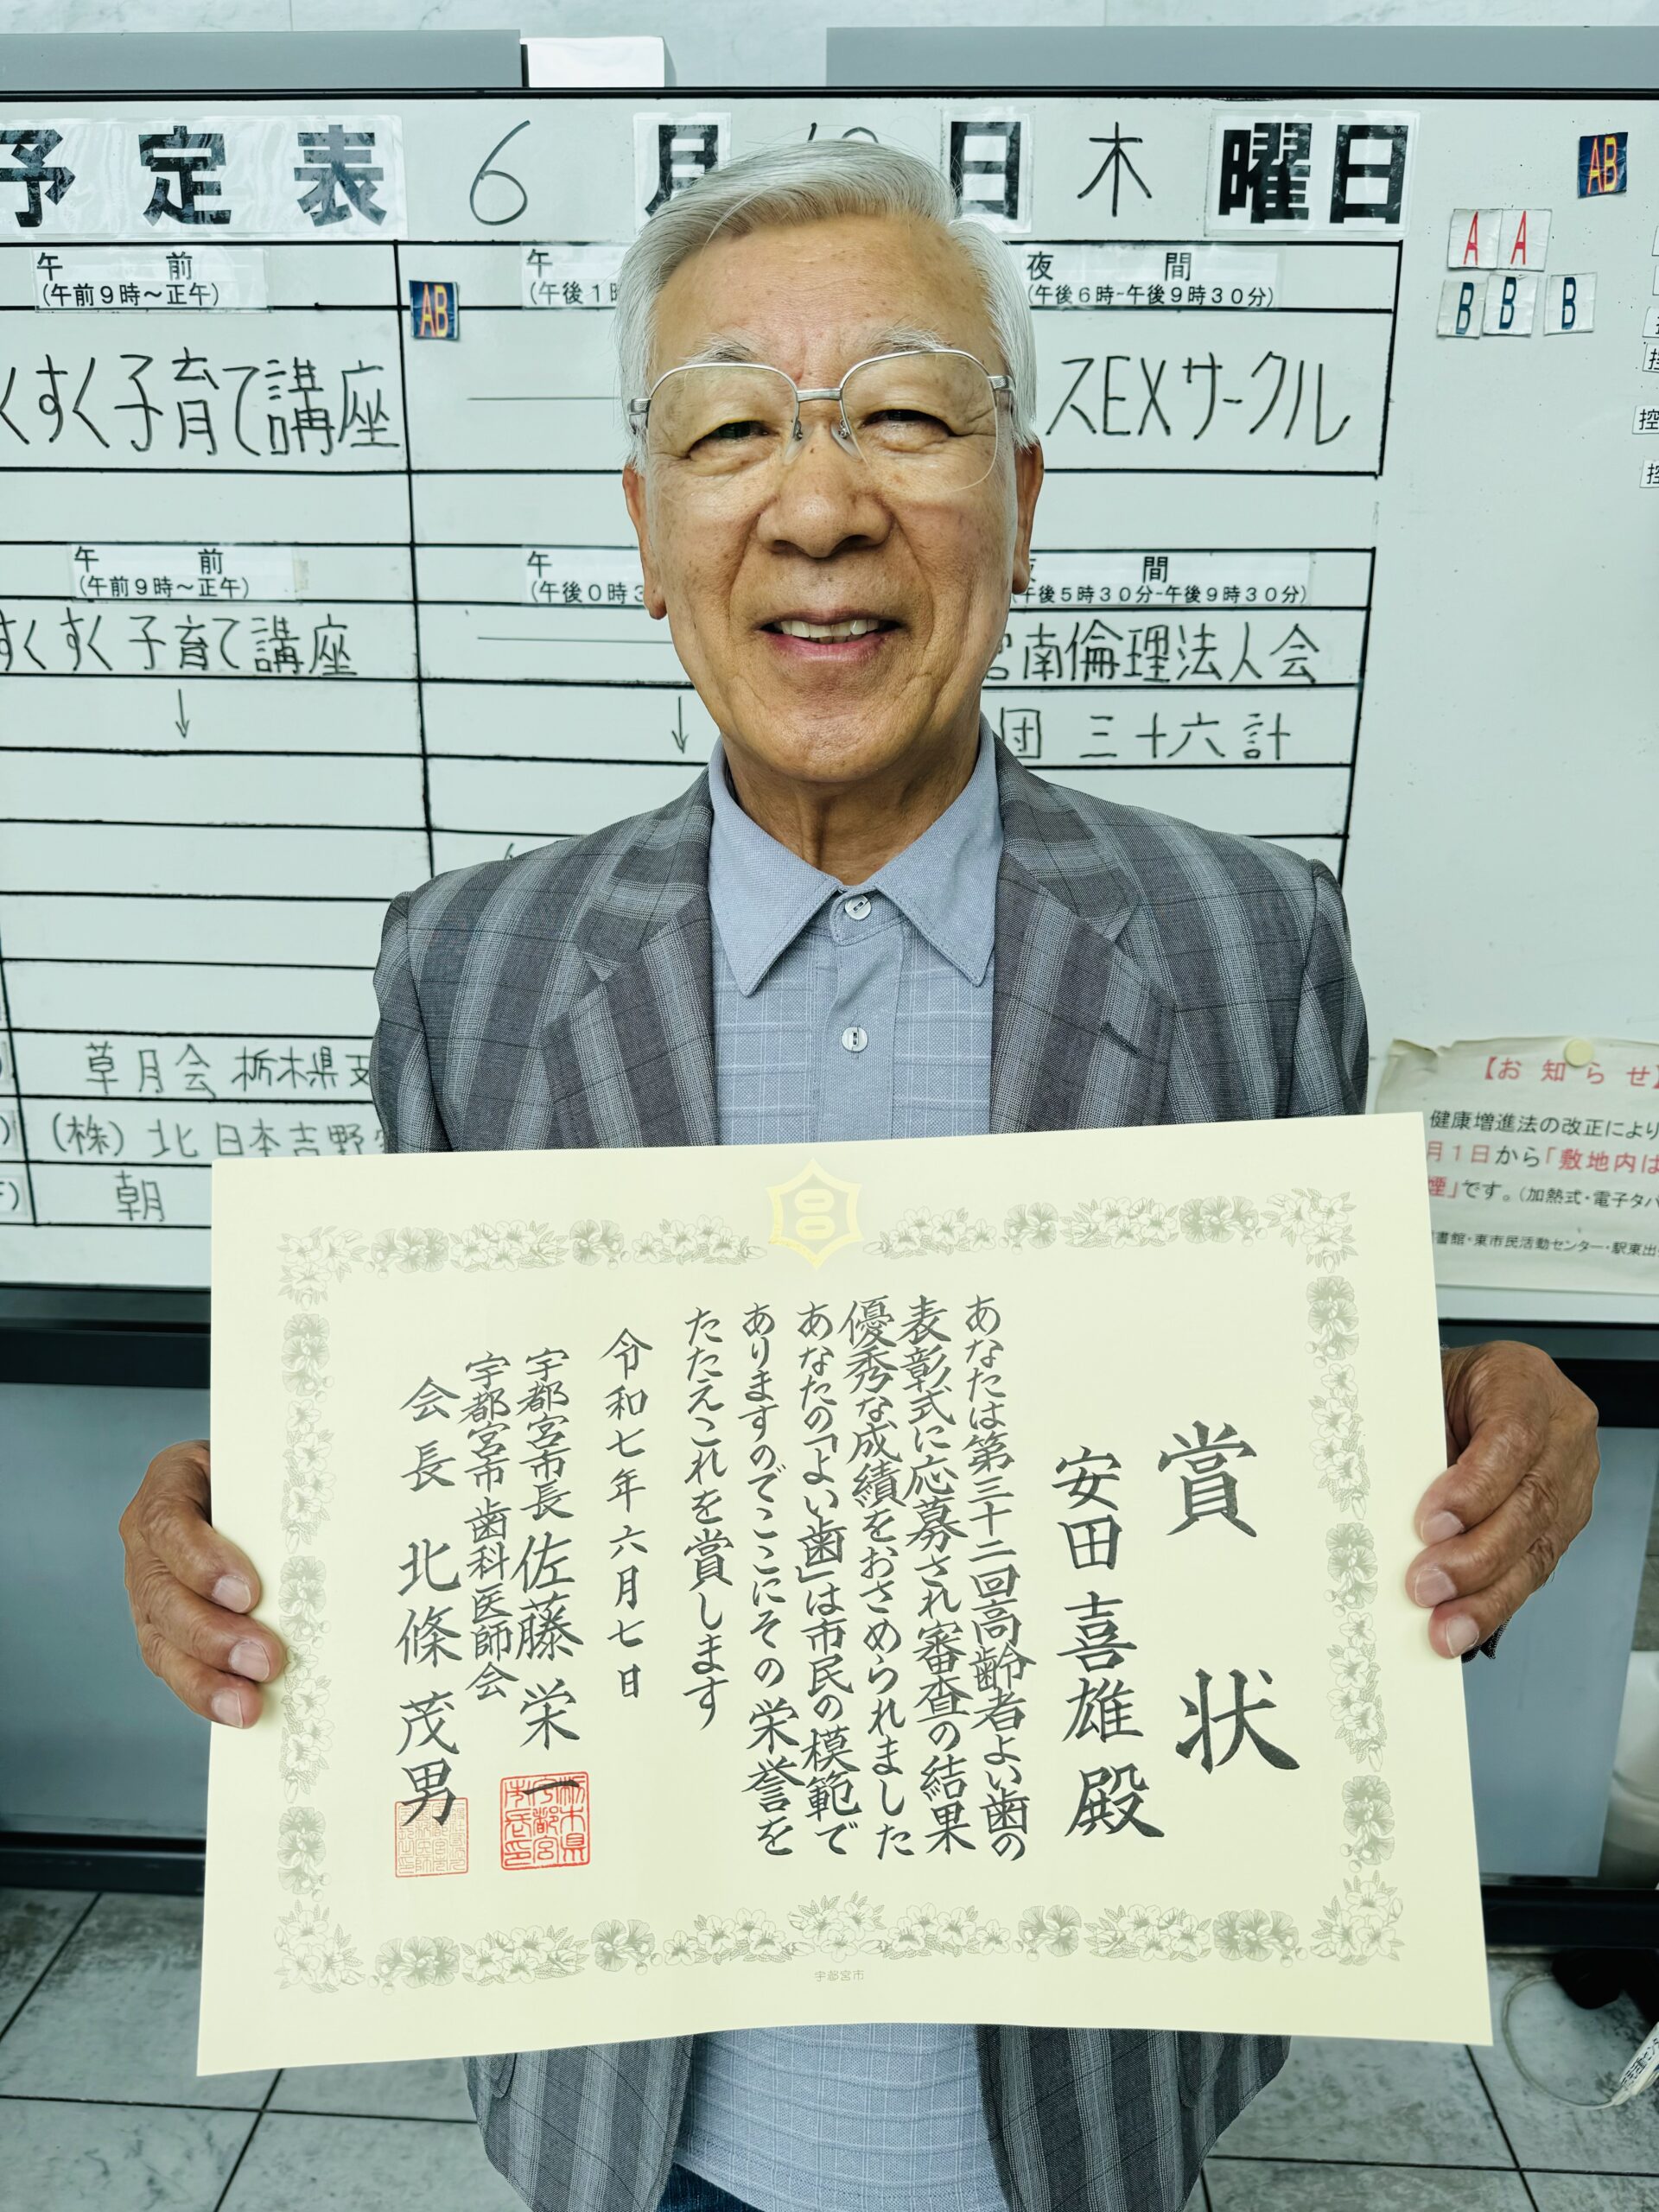 予定表 6月 日 木曜日
AB
A A
B B B
午前
(午前9時～正午)
AB
午
(午後1時
夜間
(午後6時-午後9時30分)
くすく子育て講座
スEXサークル
午前
(午前9時～正午)
午
(午後0時3
間
午後5時30分-午後9時30分)
すくすく子育て講座
南倫理法人会
↓
↓
団 三十六計
草月会 栃木県支
(株) 北日本吉野
朝
【お知らせ】
健康増進法の改正により
月1日から「敷地内は
煙」です。(加熱式・電子タバ
書館・東市民活動センター・駅東出
賞状
安田喜雄殿
あなたは第三十二回高齢者よい歯の
表彰式に応募され審査の結果
優秀な成績をおさめられました
あなたの「よい歯」は市民の模範で
ありますのでここにその栄誉を
たたえこれを賞します
令和七年六月七日
宇都宮市長 佐藤栄一
宇都宮市歯科医師会
会長 北條茂男
栃木県宇都宮市長印
宇都宮市